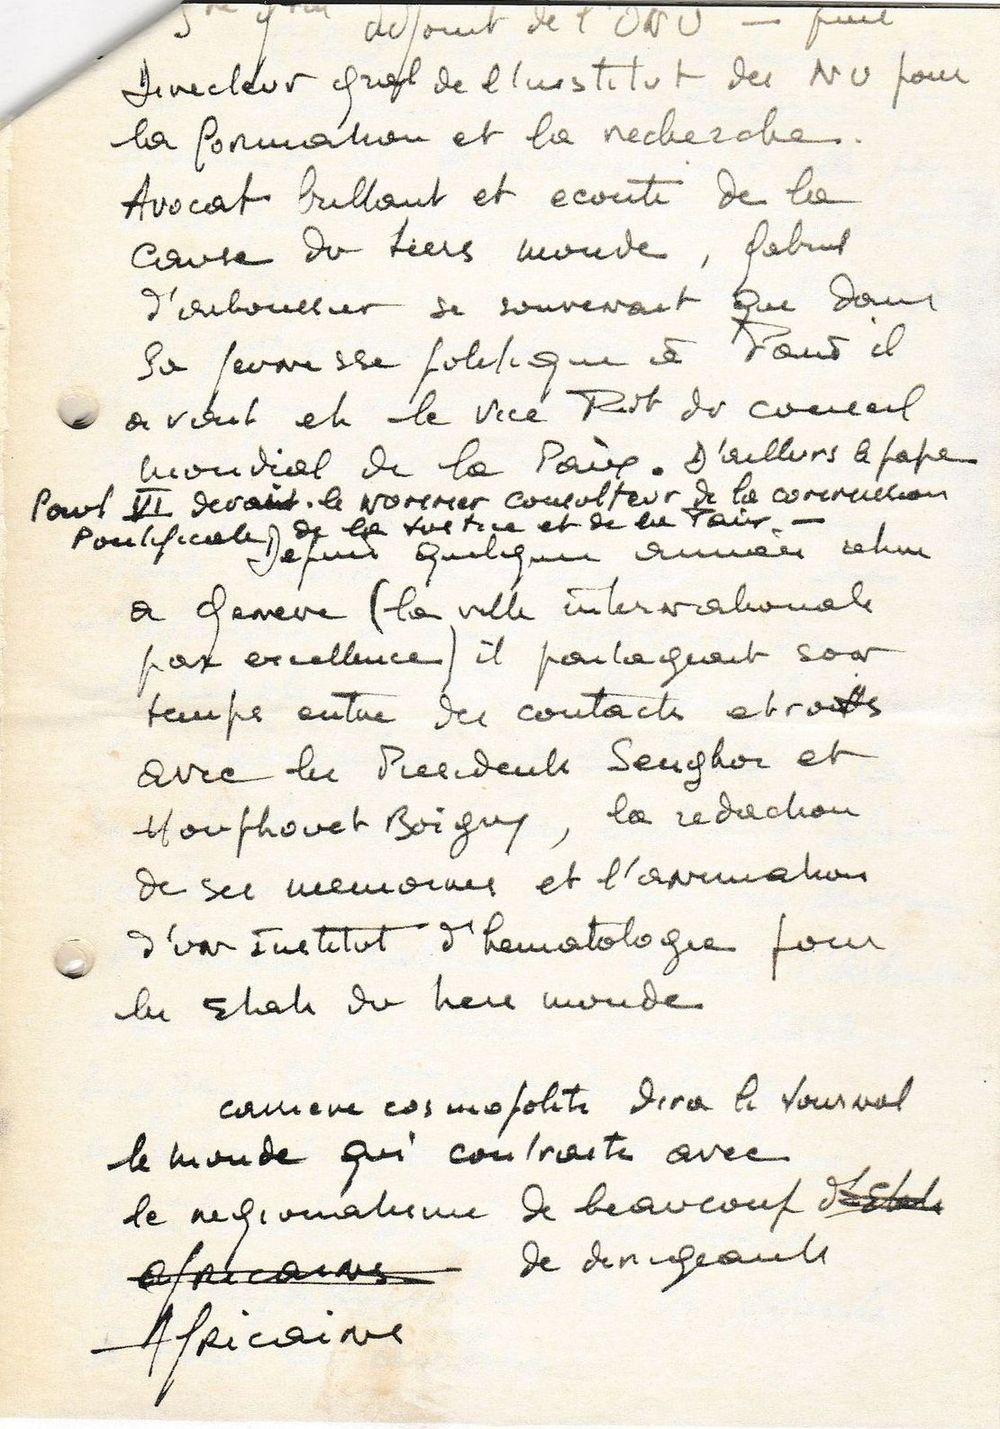 adjoint de l'ONU — puis
Directeur gral de l'institut des NU pour
la formation et la recherche.
Avocat brillant et ecouté de la
cause du tiers monde, Gabriel
d'arboussier se souvenait que dans
sa jeunesse politique à Paris il
avait eté le vice Psdt du conseil
mondial de la Paix. D'ailleurs le pape
Paul VI devait le nommer consulteur de la commission
Pontificale de la Justice et de la Paix. —
Depuis quelques années retiré
a Geneve (la ville internationale
par excellence) il partageait son
temps entre des contacts etroits
avec les Presidents Senghor et
Houphouet Boigny, la redaction
de ses memoires et l'animation
d'un institut d'hematologie pour
les Etats du tiers monde
carriere cosmopolite dira le Journal
le monde qui contraste avec
le regionalisme de beaucoup d'Etats
africains de dirigeants
Africains